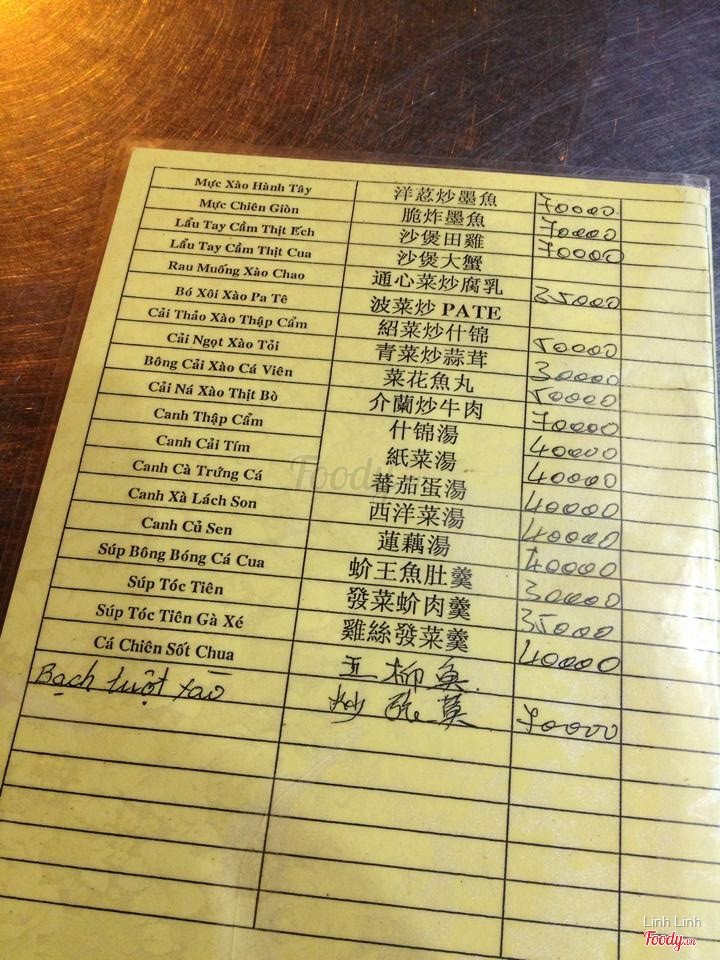 Mực Xào Hành Tây 洋蔥炒墨魚 70000
Mực Chiên Giòn 脆炸墨魚 70000
Lẩu Tay Cầm Thịt Ếch 沙煲田雞 70000
Lẩu Tay Cầm Thịt Cua 沙煲大蟹
Rau Muống Xào Chao 通心菜炒腐乳 35000
Bó Xôi Xào Pa Tê 波菜炒 PATE
Cải Thảo Xào Thập Cẩm 紹菜炒什锦 50000
Cải Ngọt Xào Tỏi 青菜炒蒜茸 30000
Bông Cải Xào Cá Viên 菜花魚丸 50000
Cải Ná Xào Thịt Bò 介蘭炒牛肉 70000
Canh Thập Cẩm 什锦湯 40000
Canh Cải Tím 紙菜湯 40000
Canh Cà Trứng Cá 蕃茄蛋湯 40000
Canh Xà Lách Son 西洋菜湯 40000
Canh Củ Sen 蓮藕湯 40000
Súp Bông Bóng Cá Cua 蚧王魚肚羹 30000
Súp Tóc Tiên 發菜蚧肉羹 35000
Súp Tóc Tiên Gà Xé 雞絲發菜羹 40000
Cá Chiên Sốt Chua 五柳魚
Bạch tuột xào 炒 70000
Foody
Linh Linh
Foody.vn